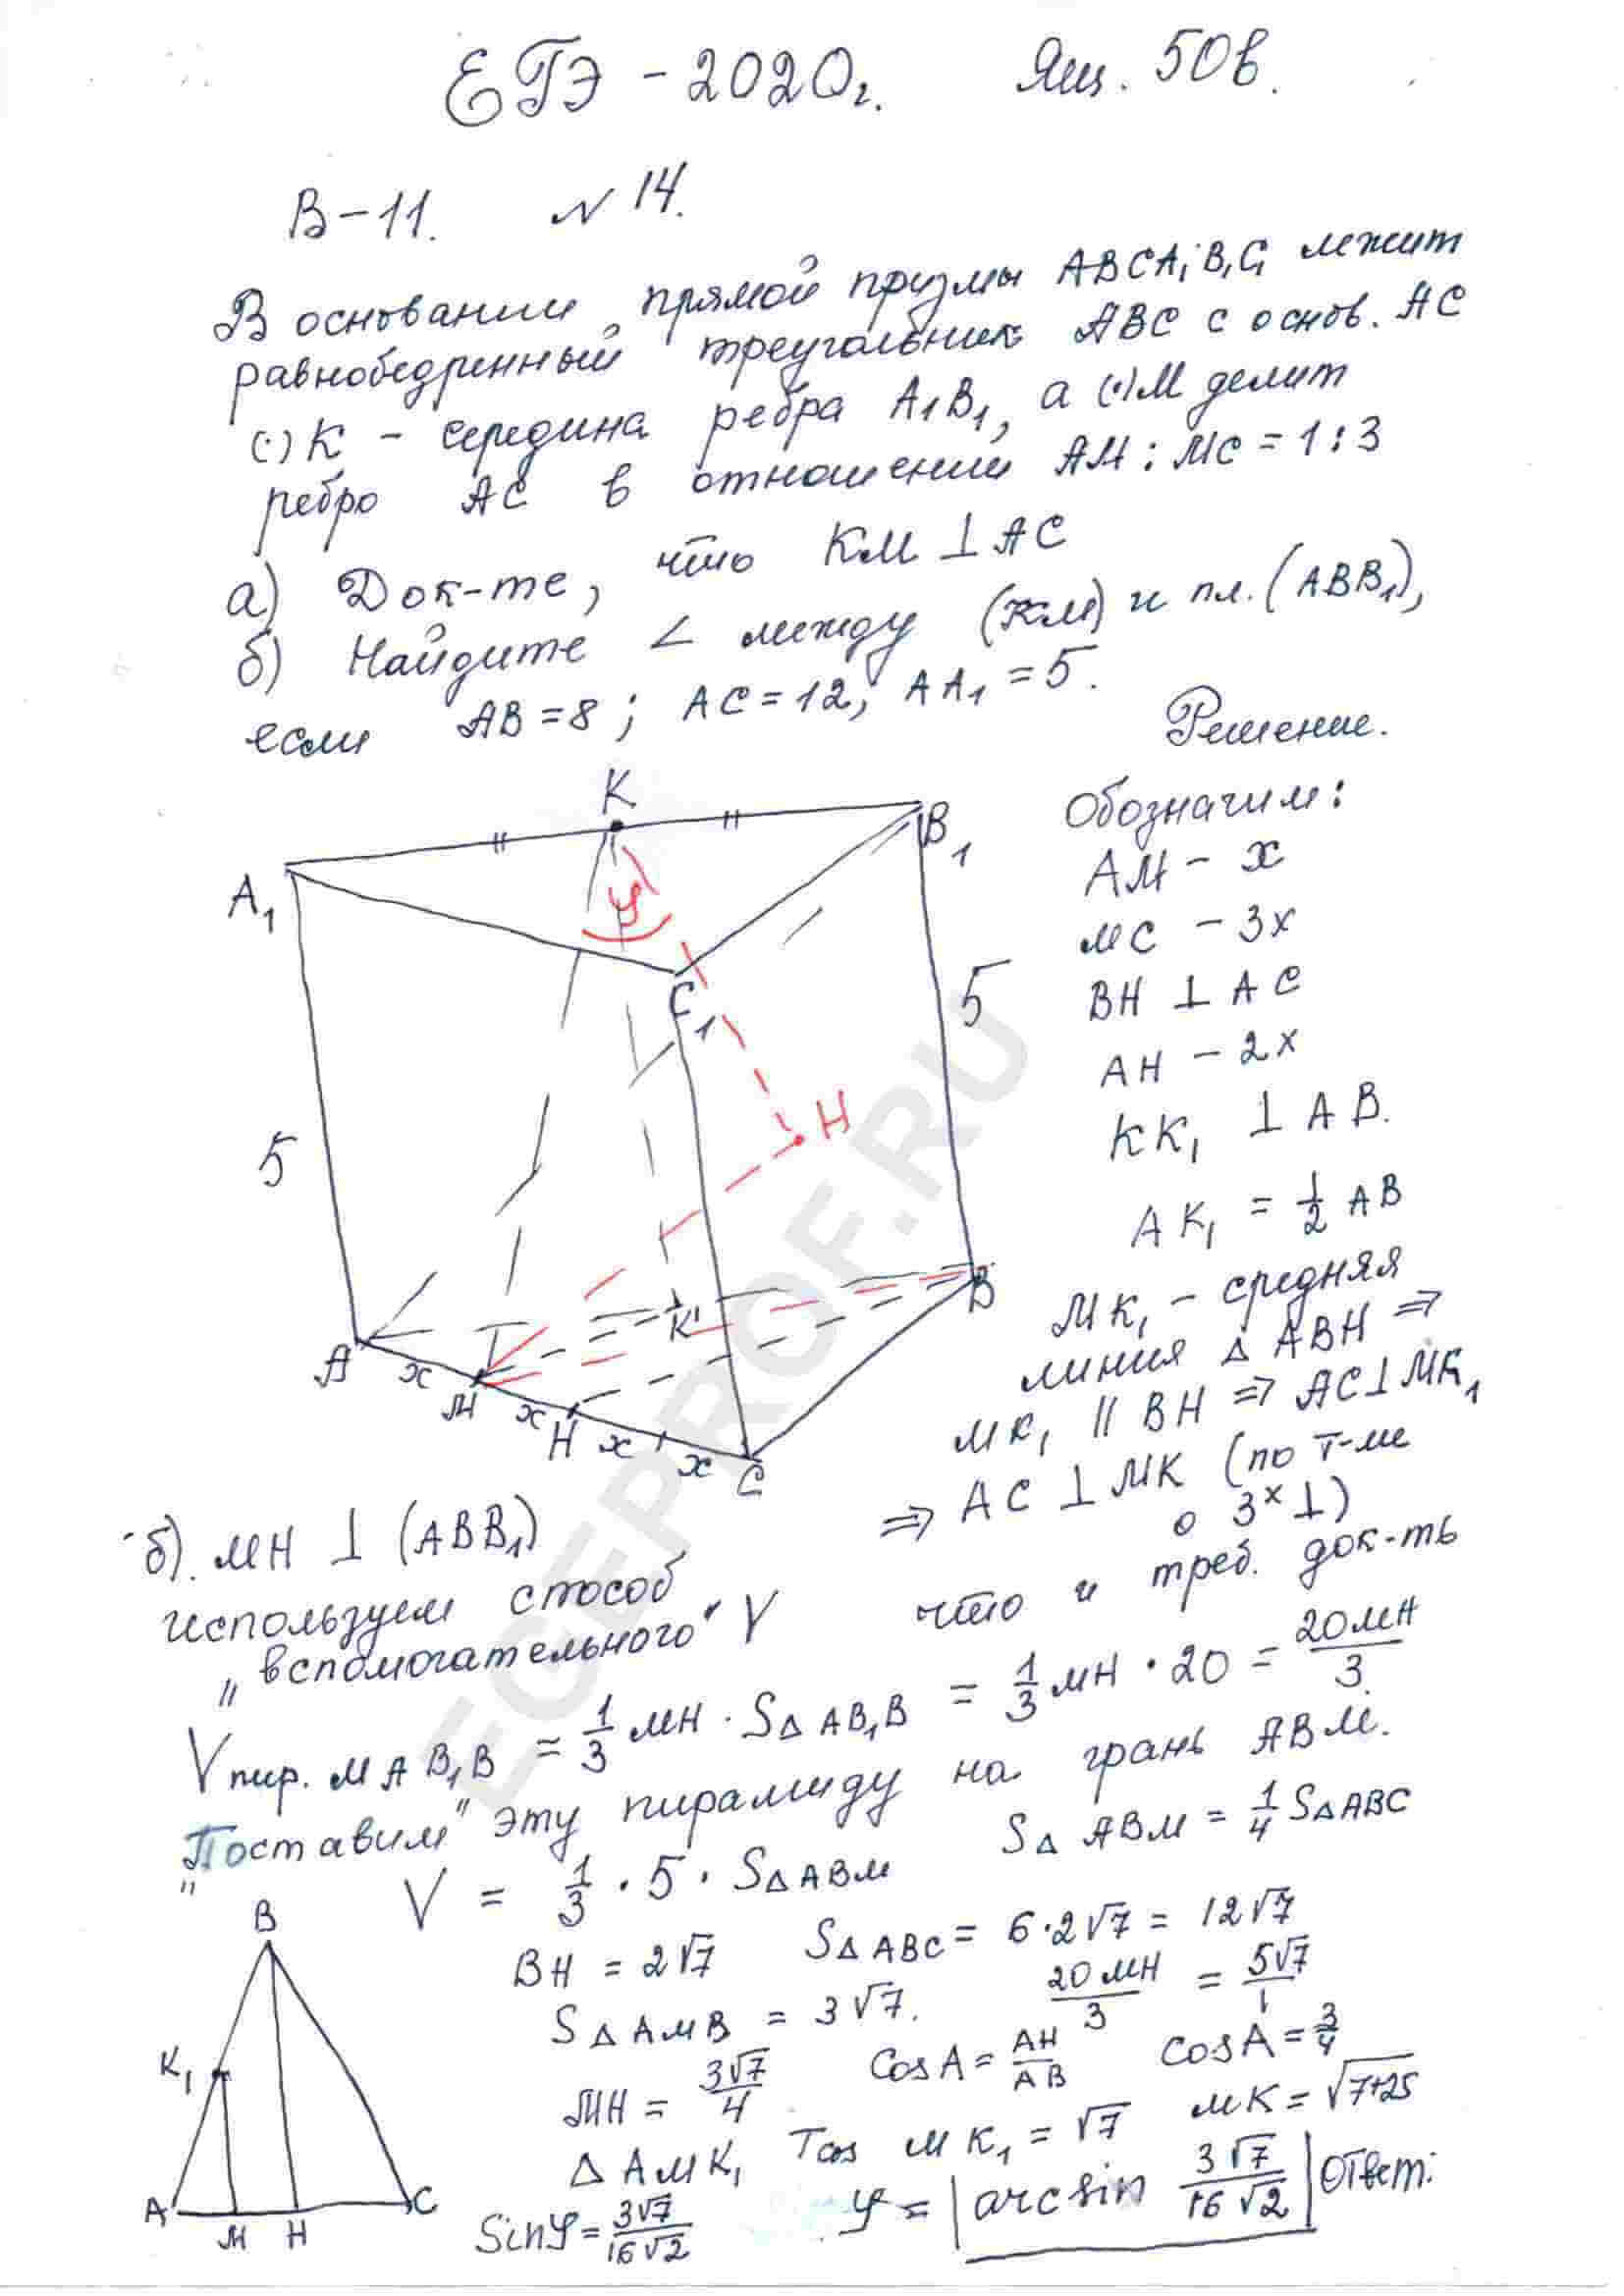 ЕГЭ - 2020г. Ящ. 50в.
В-11. № 14.
В основании прямой призмы ABCA₁B₁C₁ лежит
равнобедренный треугольник ABC с основ. AC
(·) K - середина ребра A₁B₁, а (·) M делит
ребро AC в отношении AM : MC = 1 : 3
а) Док-те, что KM ⊥ AC
б) Найдите ∠ между (KM) и пл. (ABB₁),
если AB = 8 ; AC = 12, AA₁ = 5.
Решение.
K
B₁
A₁
φ
C₁
5
5
H
A
x
M
x
H
x
x
C
K'
B
Обозначим:
AM - x
MC - 3x
BH ⊥ AC
AH - 2x
KK₁ ⊥ AB.
AK₁ = 1/2 AB
MK₁ - средняя
линия Δ ABH ⇒
MK₁ || BH ⇒ AC ⊥ MK₁
⇒ AC ⊥ MK (по т-ме
о 3ˣ ⊥)
что и треб. док-ть
б). MH ⊥ (ABB₁)
используем способ
„вспомогательного" V
V пир. MAB₁B = 1/3 MH · SΔ AB₁B = 1/3 MH · 20 = 20MH/3.
„Поставим" эту пирамиду на грань ABM.
V = 1/3 · 5 · SΔABM SΔ ABM = 1/4 SΔABC
BH = 2√7 SΔABC = 6·2√7 = 12√7
SΔAMB = 3√7. 20MH/3 = 5√7/1
MH = 3√7/4 CosA = AH/AB CosA = 3/4
ΔAMK₁ Tos MK₁ = √7 MK = √7+25
Sinφ = 3√7/16√2 φ = arcsin 3√7/16√2 Ответ:
B
K₁
A
M
H
C
EGEPROF.RU